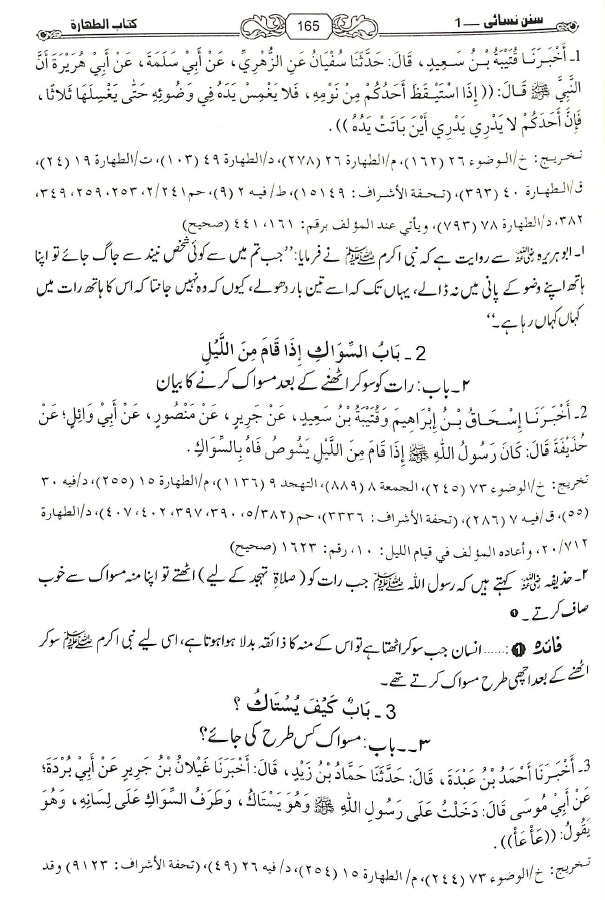 سنن نسائی ــ 1 165 كتاب الطهارة
1ـ أَخْبَرَنَا قُتَيْبَةُ بْنُ سَعِيدٍ، قَالَ: حَدَّثَنَا سُفْيَانُ عَنِ الزُّهْرِيِّ، عَنْ أَبِي سَلَمَةَ، عَنْ أَبِي هُرَيْرَةَ أَنَّ
النَّبِيَّ ﷺ قَالَ: (( إِذَا اسْتَيْقَظَ أَحَدُكُمْ مِنْ نَوْمِهِ، فَلا يَغْمِسْ يَدَهُ فِي وَضُوئِهِ حَتَّى يَغْسِلَهَا ثَلاثًا،
فَإِنَّ أَحَدَكُمْ لا يَدْرِي يَدْرِي أَيْنَ بَاتَتْ يَدُهُ )).
تخريج: خ/الوضوء ٢٦ (١٦٢)، م/الطهارة ٢٦ (٢٧٨)، د/الطهارة ٤٩ (١٠٣)، ت/الطهارة ١٩ (٢٤)،
ق/الطهارة ٤٠ (٣٩٣)، (تحفة الأشراف: ١٥١٤٩)، ط/فيه ٢ (٩)، حم ٢/٢٤١، ٢٥٣، ٢٥٩، ٣٤٩،
٣٨٢، د/الطهارة ٧٨ (٧٩٣)، ويأتي عند المؤلف برقم: ١٦١، ٤٤١ (صحيح)
۱۔ ابوہریرہ رضی اللہ عنہ سے روایت ہے کہ نبی اکرم ﷺ نے فرمایا: ’’جب تم میں سے کوئی شخص نیند سے جاگ جائے تو اپنا
ہاتھ اپنے وضو کے پانی میں نہ ڈالے، یہاں تک کہ اسے تین بار دھولے، کیوں کہ وہ نہیں جانتا کہ اس کا ہاتھ رات میں
کہاں کہاں رہا ہے۔‘‘
2 ـ بَابُ السِّوَاكِ إِذَا قَامَ مِنَ اللَّيْلِ
۲۔ باب: رات کو سو کر اٹھنے کے بعد مسواک کرنے کا بیان
2ـ أَخْبَرَنَا إِسْحَاقُ بْنُ إِبْرَاهِيمَ وَقُتَيْبَةُ بْنُ سَعِيدٍ، عَنْ جَرِيرٍ، عَنْ مَنْصُورٍ، عَنْ أَبِي وَائِلٍ؛ عَنْ
حُذَيْفَةَ قَالَ: كَانَ رَسُولُ اللهِ ﷺ إِذَا قَامَ مِنَ اللَّيْلِ يَشُوصُ فَاهُ بِالسِّوَاكِ.
تخريج: خ/الوضوء ٧٣ (٢٤٥)، الجمعة ٨ (٨٨٩)، التهجد ٩ (١١٣٦)، م/الطهارة ١٥ (٢٥٥)، د/فيه ٣٠
(٥٥)، ق/فيه ٧ (٢٨٦)، (تحفة الأشراف: ٣٣٣٦)، حم (٥/٣٨٢، ٣٩٠، ٣٩٧، ٤٠٢، ٤٠٧)، د/الطهارة
٢٠/٧١٢، وأعاده المؤلف في قيام الليل: ١٠، رقم: ١٦٢٣ (صحيح)
۲۔ حذیفہ رضی اللہ عنہ کہتے ہیں کہ رسول اللہ ﷺ جب رات کو (صلاۃِ تہجد کے لیے) اٹھتے تو اپنا منہ مسواک سے خوب
صاف کرتے۔ ❶
فائدہ ❶ :...... انسان جب سو کر اٹھتا ہے تو اس کے منہ کا ذائقہ بدلا ہوا ہوتا ہے، اسی لیے نبی اکرم ﷺ سو کر
اٹھنے کے بعد اچھی طرح مسواک کرتے تھے۔
3 ـ بَابٌ كَيْفَ يُسْتَاكُ ؟
۳۔۔ باب: مسواک کس طرح کی جائے؟
3ـ أَخْبَرَنَا أَحْمَدُ بْنُ عَبْدَةَ، قَالَ: حَدَّثَنَا حَمَّادُ بْنُ زَيْدٍ، قَالَ: أَخْبَرَنَا غَيْلانُ بْنُ جَرِيرٍ عَنْ أَبِي بُرْدَةَ؛
عَنْ أَبِي مُوسَى قَالَ: دَخَلْتُ عَلَى رَسُولِ اللهِ ﷺ وَهُوَ يَسْتَاكُ، وَطَرَفُ السِّوَاكِ عَلَى لِسَانِهِ، وَهُوَ
يَقُولُ: ((عَأْ عَأْ)).
تخريج: خ/الوضوء ٧٣ (٢٤٤)، م/الطهارة ١٥ (٢٥٤)، د/فيه ٢٦ (٤٩)، (تحفة الأشراف: ٩١٢٣) وقد